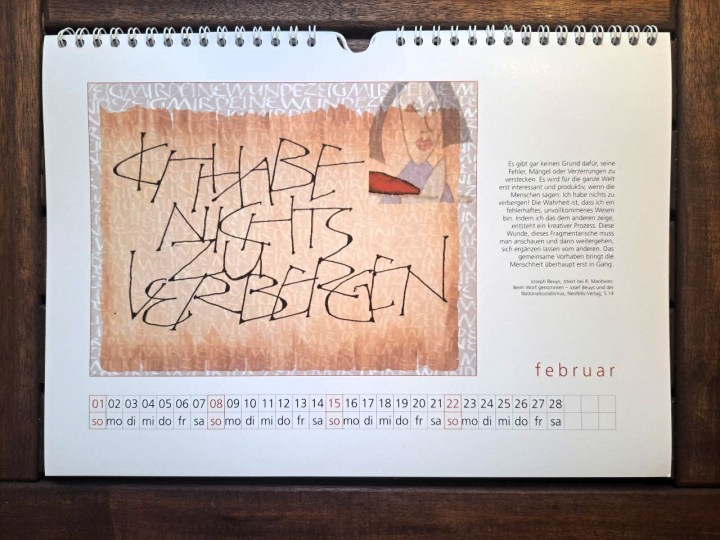 GMIRDEINEWUNDEZEIGMIRDEINEWUNDEZ
ZIGMIRDEINEWUNDEZEIGMIRDEINE
ICH HABE
NICHTS
ZU
VERBERGEN
Es gibt gar keinen Grund dafür, seine
Fehler, Mängel oder Verzerrungen zu
verstecken. Es wird für die ganze Welt
erst interessant und produktiv, wenn die
Menschen sagen: Ich habe nichts zu
verbergen! Die Wahrheit ist, dass ich ein
fehlerhaftes, unvollkommenes Wesen
bin. Indem ich das dem anderen zeige,
entsteht ein kreativer Prozess. Diese
Wunde, dieses Fragmentarische muss
man anschauen und dann weitergehen,
sich ergänzen lassen vom anderen. Das
gemeinsame Vorhaben bringt die
Menschheit überhaupt erst in Gang.
Joseph Beuys, zitiert bei R. Mannheim:
Beim Wort genommen – Josef Beuys und der
Nationalsozialismus, Neofelis-Verlag, S.14
februar
01 02 03 04 05 06 07 08 09 10 11 12 13 14 15 16 17 18 19 20 21 22 23 24 25 26 27 28
so mo di mi do fr sa so mo di mi do fr sa so mo di mi do fr sa so mo di mi do fr sa